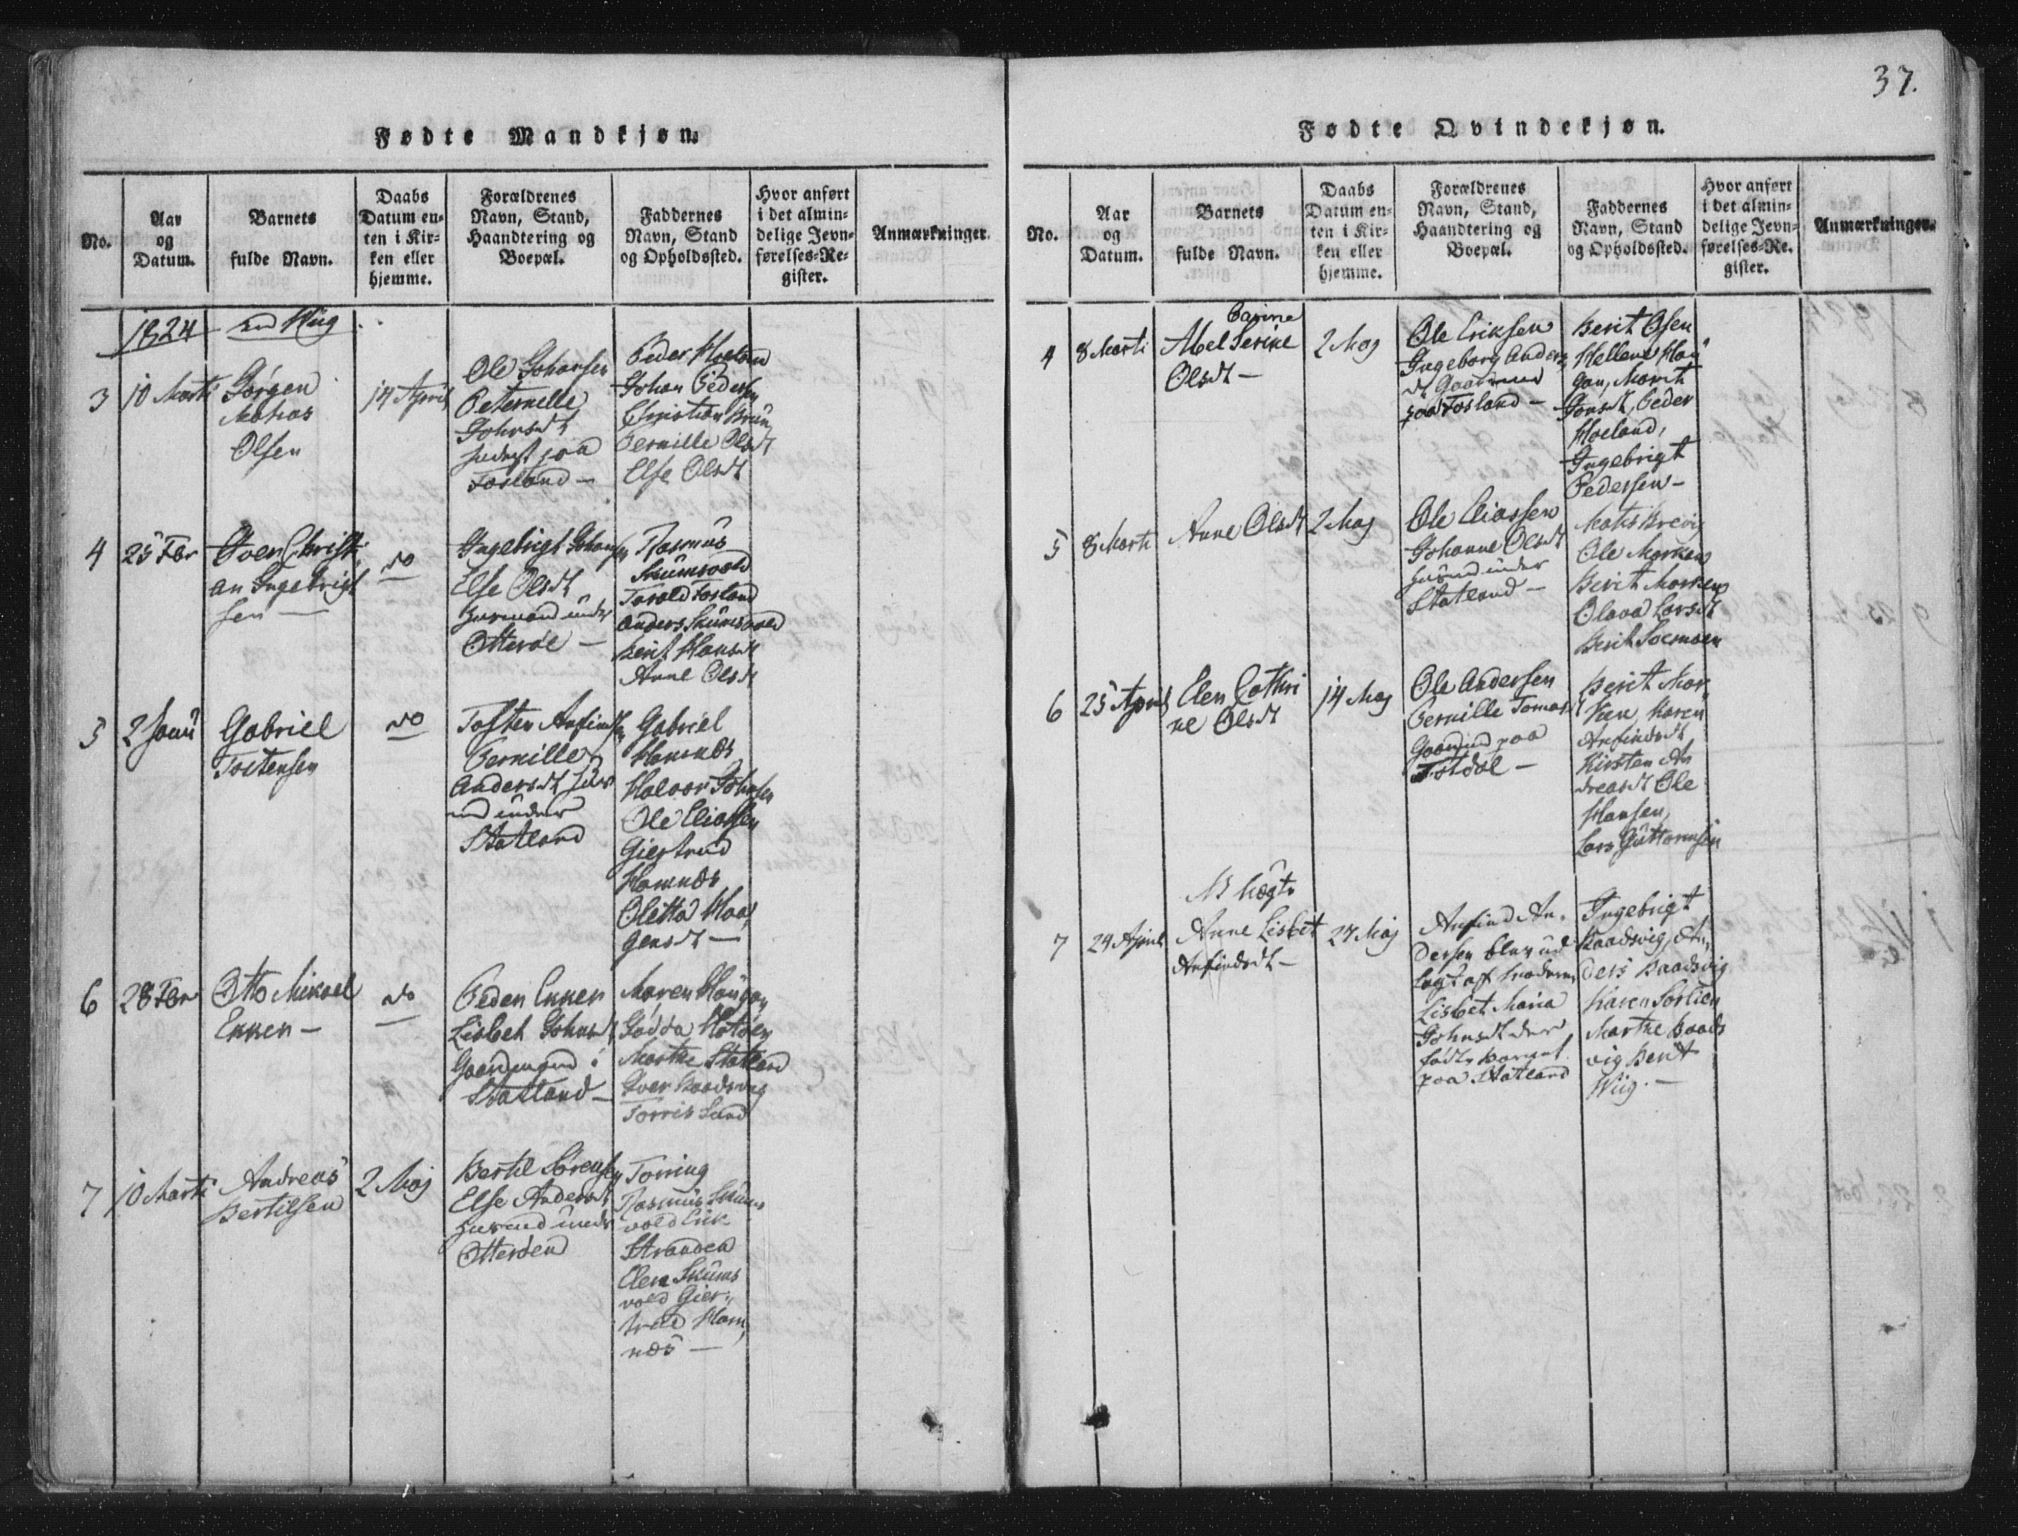 Fødte Mandkjøn.
No.
Aar
og
Datum.
Barnets
fulde Navn.
Daabs
Datum en-
ten i Kir-
ken eller
hjemme.
Forældrenes
Navn, Stand,
Haandtering og
Boepæl.
Faddernes
Navn, Stand
og Opholdssted.
Hvor anført
i det almin-
delige Jevn-
førelses-Re-
gister.
Anmærkninger.
1824
3
10 Marti
Jørgen
Matias
Olsen
14 April
Ole Johansen
Peternelle
Johnsdt
paa
Fosland –
Peder Hoeland
Johan Peders
Christian Brun
Pernille Olsdt
Else Olsdt
4
25 Febr
Iver Christi
an Ingebrigt
sen
do
Ingebrigt Johans
Else Olsdt
Huusmand under
Otterøe –
Rasmus
Skumsvold
Tarald Fosland
Anders Skumsvold
Berit Hansdt
Anne Olsdt
5
2
Gabriel
Tostensen
do
Tosten Anfinds
Pernille
Andersdt Huus
md under
Statland
Gabriel
Hamnæs
Halvor Johnsen
Ole Eliassen
Giertrud
Hamnæs
Olitta Haa
gensdt –
6
28 Febr
Otto Mikael
Ekker –
do
Peder Ekker
Lisbet Johnsdt
Gaardmand i
Statland –
Maren Haugan
Marthe Statland
Iver Kaadsvig
Torris Sund
7
10 Marti
Andreas
Bertilsen
2 Maj
Bertil Sørensen
Else Andersdt
Husmd under
Otterøen
Torring
Rasmus Skums
vold Erik
Stranden
Elen Skums
vold Gier
trud Ham
næs –
37.
Fødte Qvindekjøn.
No.
Aar
og
Datum.
Barnets
fulde Navn.
Daabs
Datum en-
ten i Kir-
ken eller
hjemme.
Forældrenes
Navn, Stand,
Haandtering og
Boepæl.
Faddernes
Navn, Stand
og Opholdsted.
Hvor anført
i det almin-
delige Jevn-
førelses-Re-
gister.
Anmærkninger.
4
8 Marti
Abel Serine
Olsdt –
2 Maj
Ole Eriksen
Ingeborg Anders
dt Gaardmd
paa Fosland –
Berit Olsen
Hellene Hau
gan, Marit
Jonsdt, Peder
Hoeland,
Ingebrigt
Pedersen –
5
8 Marti
Anne Olsdt
2 Maj
Ole Eliassen
Johanne Olsdt
Husmd under
Statland –
Mathis Brevig
Ole Morken
Berit Morken
Olava Larsdt
Berit Soemoen
6
25 April
Elen Cathri
ne Olsdt
14 Maj
Ole Andersen
Pernille Tomas
Gaardmd paa
Tisdal –
Berit Mor
ken, Karen
Anfindsdt
Kirsten An
dreasdt Ole
Hansen,
Lars Guttormsen
7
24 April
Anne Lisbet
Anfindsdt –
27 Maj
Anfind An
dersen blev ud
lagt af Moderen
Lisbet Maria
Johnsdt der
fødte Barnet
paa Statland
Ingebrigt
Kaadsvig, An
ders Kaadsvig
Karen Sørlien
Marthe Kaads
vig Berit
Wiig. –